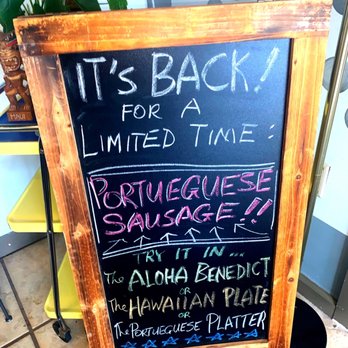 IT'S BACK!
FOR A
LIMITED TIME:
PORTUEGUESE
SAUSAGE!!
TRY IT IN...
The ALOHA BENEDICT
OR
The HAWAIIAN PLATE
OR
The PORTUEGUESE PLATTER
MAUI